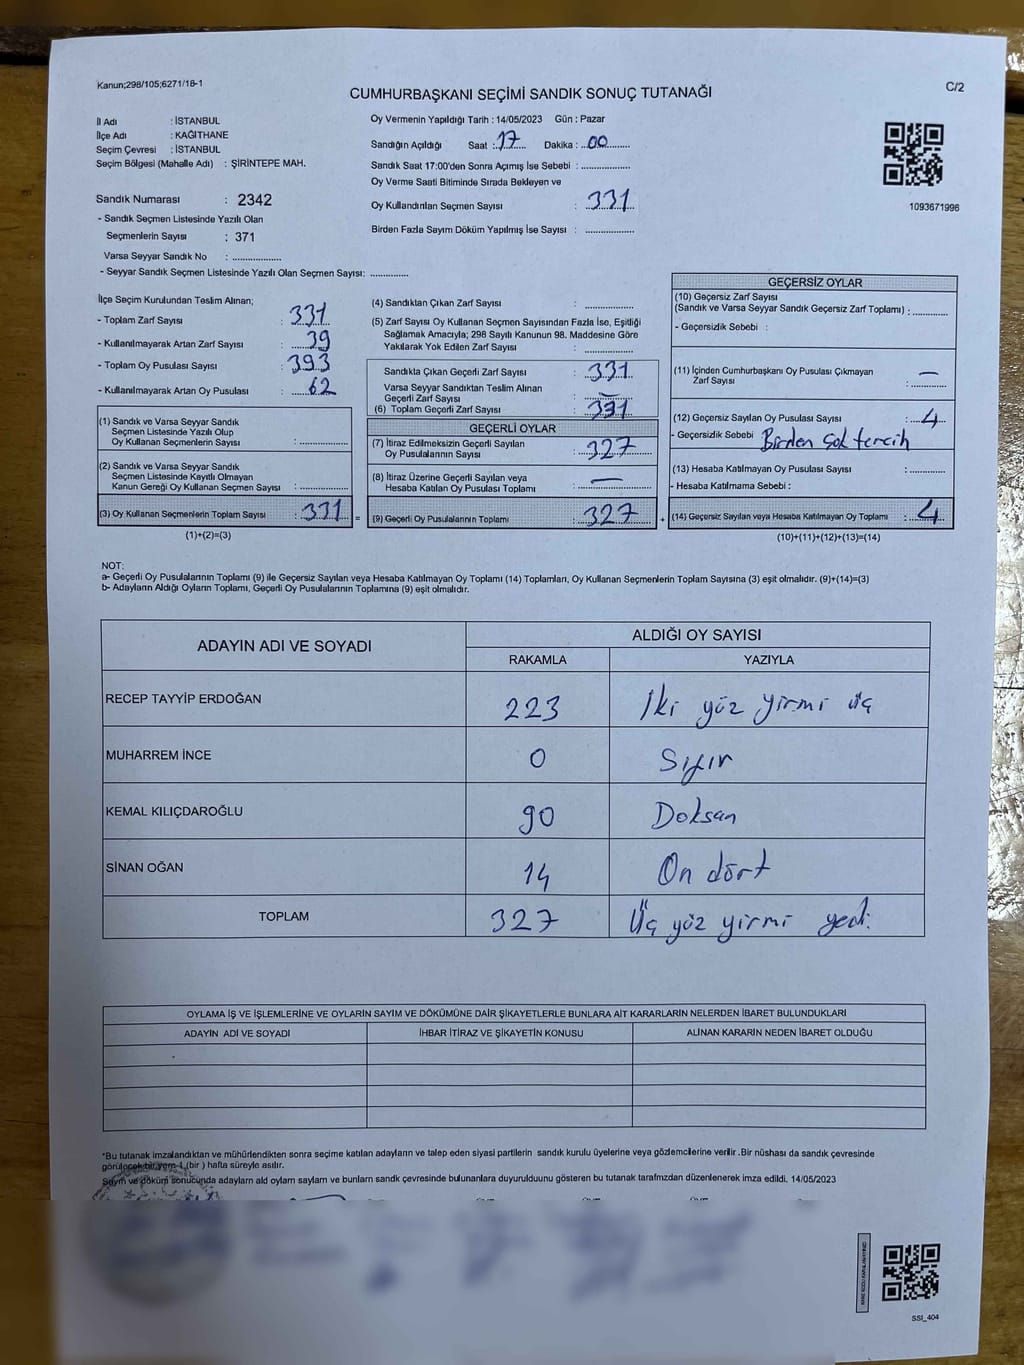 Kanun;298/105;6271/18-1
C/2
CUMHURBAŞKANI SEÇİMİ SANDIK SONUÇ TUTANAĞI
İl Adı : İSTANBUL
İlçe Adı : KAĞITHANE
Seçim Çevresi : İSTANBUL
Seçim Bölgesi (Mahalle Adı) : ŞİRİNTEPE MAH.
Sandık Numarası : 2342
- Sandık Seçmen Listesinde Yazılı Olan
Seçmenlerin Sayısı : 371
Varsa Seyyar Sandık No : ..............
- Seyyar Sandık Seçmen Listesinde Yazılı Olan Seçmen Sayısı: ............
Oy Vermenin Yapıldığı Tarih : 14/05/2023 Gün : Pazar
Sandığın Açıldığı Saat : 17 Dakika : 00
Sandık Saat 17:00'den Sonra Açımış İse Sebebi : ..............
Oy Verme Saati Bitiminde Sırada Bekleyen ve
Oy Kullandırılan Seçmen Sayısı : 331
Birden Fazla Sayım Döküm Yapılmış İse Sayısı : ..............
1093671996
İlçe Seçim Kurulundan Teslim Alınan;
- Toplam Zarf Sayısı : 331
- Kullanılmayarak Artan Zarf Sayısı : 39
- Toplam Oy Pusulası Sayısı : 393
- Kullanılmayarak Artan Oy Pusulası : 62
(1) Sandık ve Varsa Seyyar Sandık
Seçmen Listesinde Yazılı Olup
Oy Kullanan Seçmenlerin Sayısı : ..............
(2) Sandık ve Varsa Seyyar Sandık
Seçmen Listesinde Kayıtlı Olmayan
Kanun Gereği Oy Kullanan Seçmen Sayısı : ..............
(3) Oy Kullanan Seçmenlerin Toplam Sayısı : 331 =
(1)+(2)=(3)
(4) Sandıktan Çıkan Zarf Sayısı : ..............
(5) Zarf Sayısı Oy Kullanan Seçmen Sayısından Fazla İse, Eşitliği
Sağlamak Amacıyla; 298 Sayılı Kanunun 98. Maddesine Göre
Yakılarak Yok Edilen Zarf Sayısı : ..............
Sandıkta Çıkan Geçerli Zarf Sayısı : 331
Varsa Seyyar Sandıktan Teslim Alınan
Geçerli Zarf Sayısı : —
(6) Toplam Geçerli Zarf Sayısı : 331
GEÇERLİ OYLAR
(7) İtiraz Edilmeksizin Geçerli Sayılan
Oy Pusulalarının Sayısı : 327
(8) İtiraz Üzerine Geçerli Sayılan veya
Hesaba Katılan Oy Pusulası Toplamı : —
(9) Geçerli Oy Pusulalarının Toplamı : 327 +
GEÇERSİZ OYLAR
(10) Geçersiz Zarf Sayısı
(Sandık ve Varsa Seyyar Sandık Geçersiz Zarf Toplamı) : ............
- Geçersizlik Sebebi :
(11) İçinden Cumhurbaşkanı Oy Pusulası Çıkmayan
Zarf Sayısı : —
(12) Geçersiz Sayılan Oy Pusulası Sayısı : 4
- Geçersizlik Sebebi Birden çok tercih
(13) Hesaba Katılmayan Oy Pusulası Sayısı : ............
- Hesaba Katılmama Sebebi :
(14) Geçersiz Sayılan veya Hesaba Katılmayan Oy Toplamı : 4
(10)+(11)+(12)+(13)=(14)
NOT:
a- Geçerli Oy Pusulalarının Toplamı (9) ile Geçersiz Sayılan veya Hesaba Katılmayan Oy Toplamı (14) Toplamları, Oy Kullanan Seçmenlerin Toplam Sayısına (3) eşit olmalıdır. (9)+(14)=(3)
b- Adayların Aldığı Oyların Toplamı, Geçerli Oy Pusulalarının Toplamına (9) eşit olmalıdır.
ADAYIN ADI VE SOYADI
ALDIĞI OY SAYISI
RAKAMLA YAZIYLA
RECEP TAYYİP ERDOĞAN 223 İki yüz yirmi üç
MUHARREM İNCE 0 Sıfır
KEMAL KILIÇDAROĞLU 90 Doksan
SİNAN OĞAN 14 On dört
TOPLAM 327 Üç yüz yirmi yedi
OYLAMA İŞ VE İŞLEMLERİNE VE OYLARIN SAYIM VE DÖKÜMÜNE DAİR ŞİKAYETLERLE BUNLARA AİT KARARLARIN NELERDEN İBARET BULUNDUKLARI
ADAYIN ADI VE SOYADI İHBAR İTİRAZ VE ŞİKAYETİN KONUSU ALINAN KARARIN NEDEN İBARET OLDUĞU
*Bu tutanak imzalandıktan ve mühürlendikten sonra seçime katılan adayların ve talep eden siyasi partilerin sandık kurulu üyelerine veya gözlemcilerine verilir .Bir nüshası da sandık çevresinde
görülecek bir yere 1 (bir ) hafta süreyle asılır.
Sayım ve döküm sonucunda adayların ald oyların saylam ve bunların sandk çevresinde bulunanlara duyurulduunu gösteren bu tutanak tarafmzdan düzenlenerek imza edildi. 14/05/2023
SSI_404